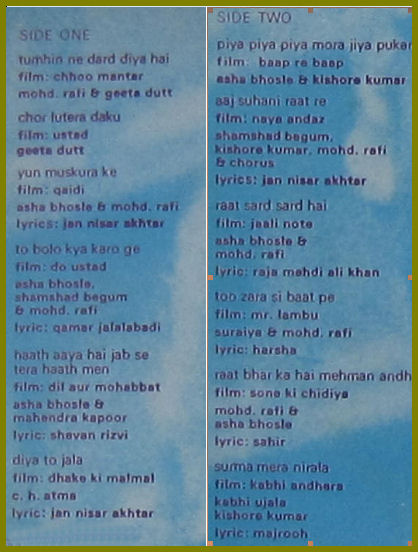 SIDE ONE
tumhin ne dard diya hai
film: chhoo mantar
mohd. rafi & geeta dutt
chor lutera daku
film: ustad
geeta dutt
yun muskura ke
film: qaidi
asha bhosle & mohd. rafi
lyrics: jan nisar akhtar
to bolo kya karo ge
film: do ustad
asha bhosle,
shamshad begum
& mohd. rafi
lyric: qamar jalalabadi
haath aaya hai jab se
tera haath men
film: dil aur mohabbat
asha bhosle &
mahendra kapoor
lyric: shevan rizvi
diya to jala
film: dhake ki malmal
c. h. atma
lyric: jan nisar akhtar
SIDE TWO
piya piya piya mora jiya pukar
film: baap re baap
asha bhosle & kishore kumar
aaj suhani raat re
film: naya andaz
shamshad begum,
kishore kumar, mohd. rafi
& chorus
lyrics: jan nisar akhtar
raat sard sard hai
film: jaali note
asha bhosle &
mohd. rafi
lyric: raja mehdi ali khan
too zara si baat pe
film: mr. lambu
suraiya & mohd. rafi
lyric: harsha
raat bhar ka hai mehman andh
film: sone ki chidiya
mohd. rafi &
asha bhosle
lyric: sahir
surma mera nirala
film: kabhi andhera
kabhi ujala
kishore kumar
lyric: majrooh